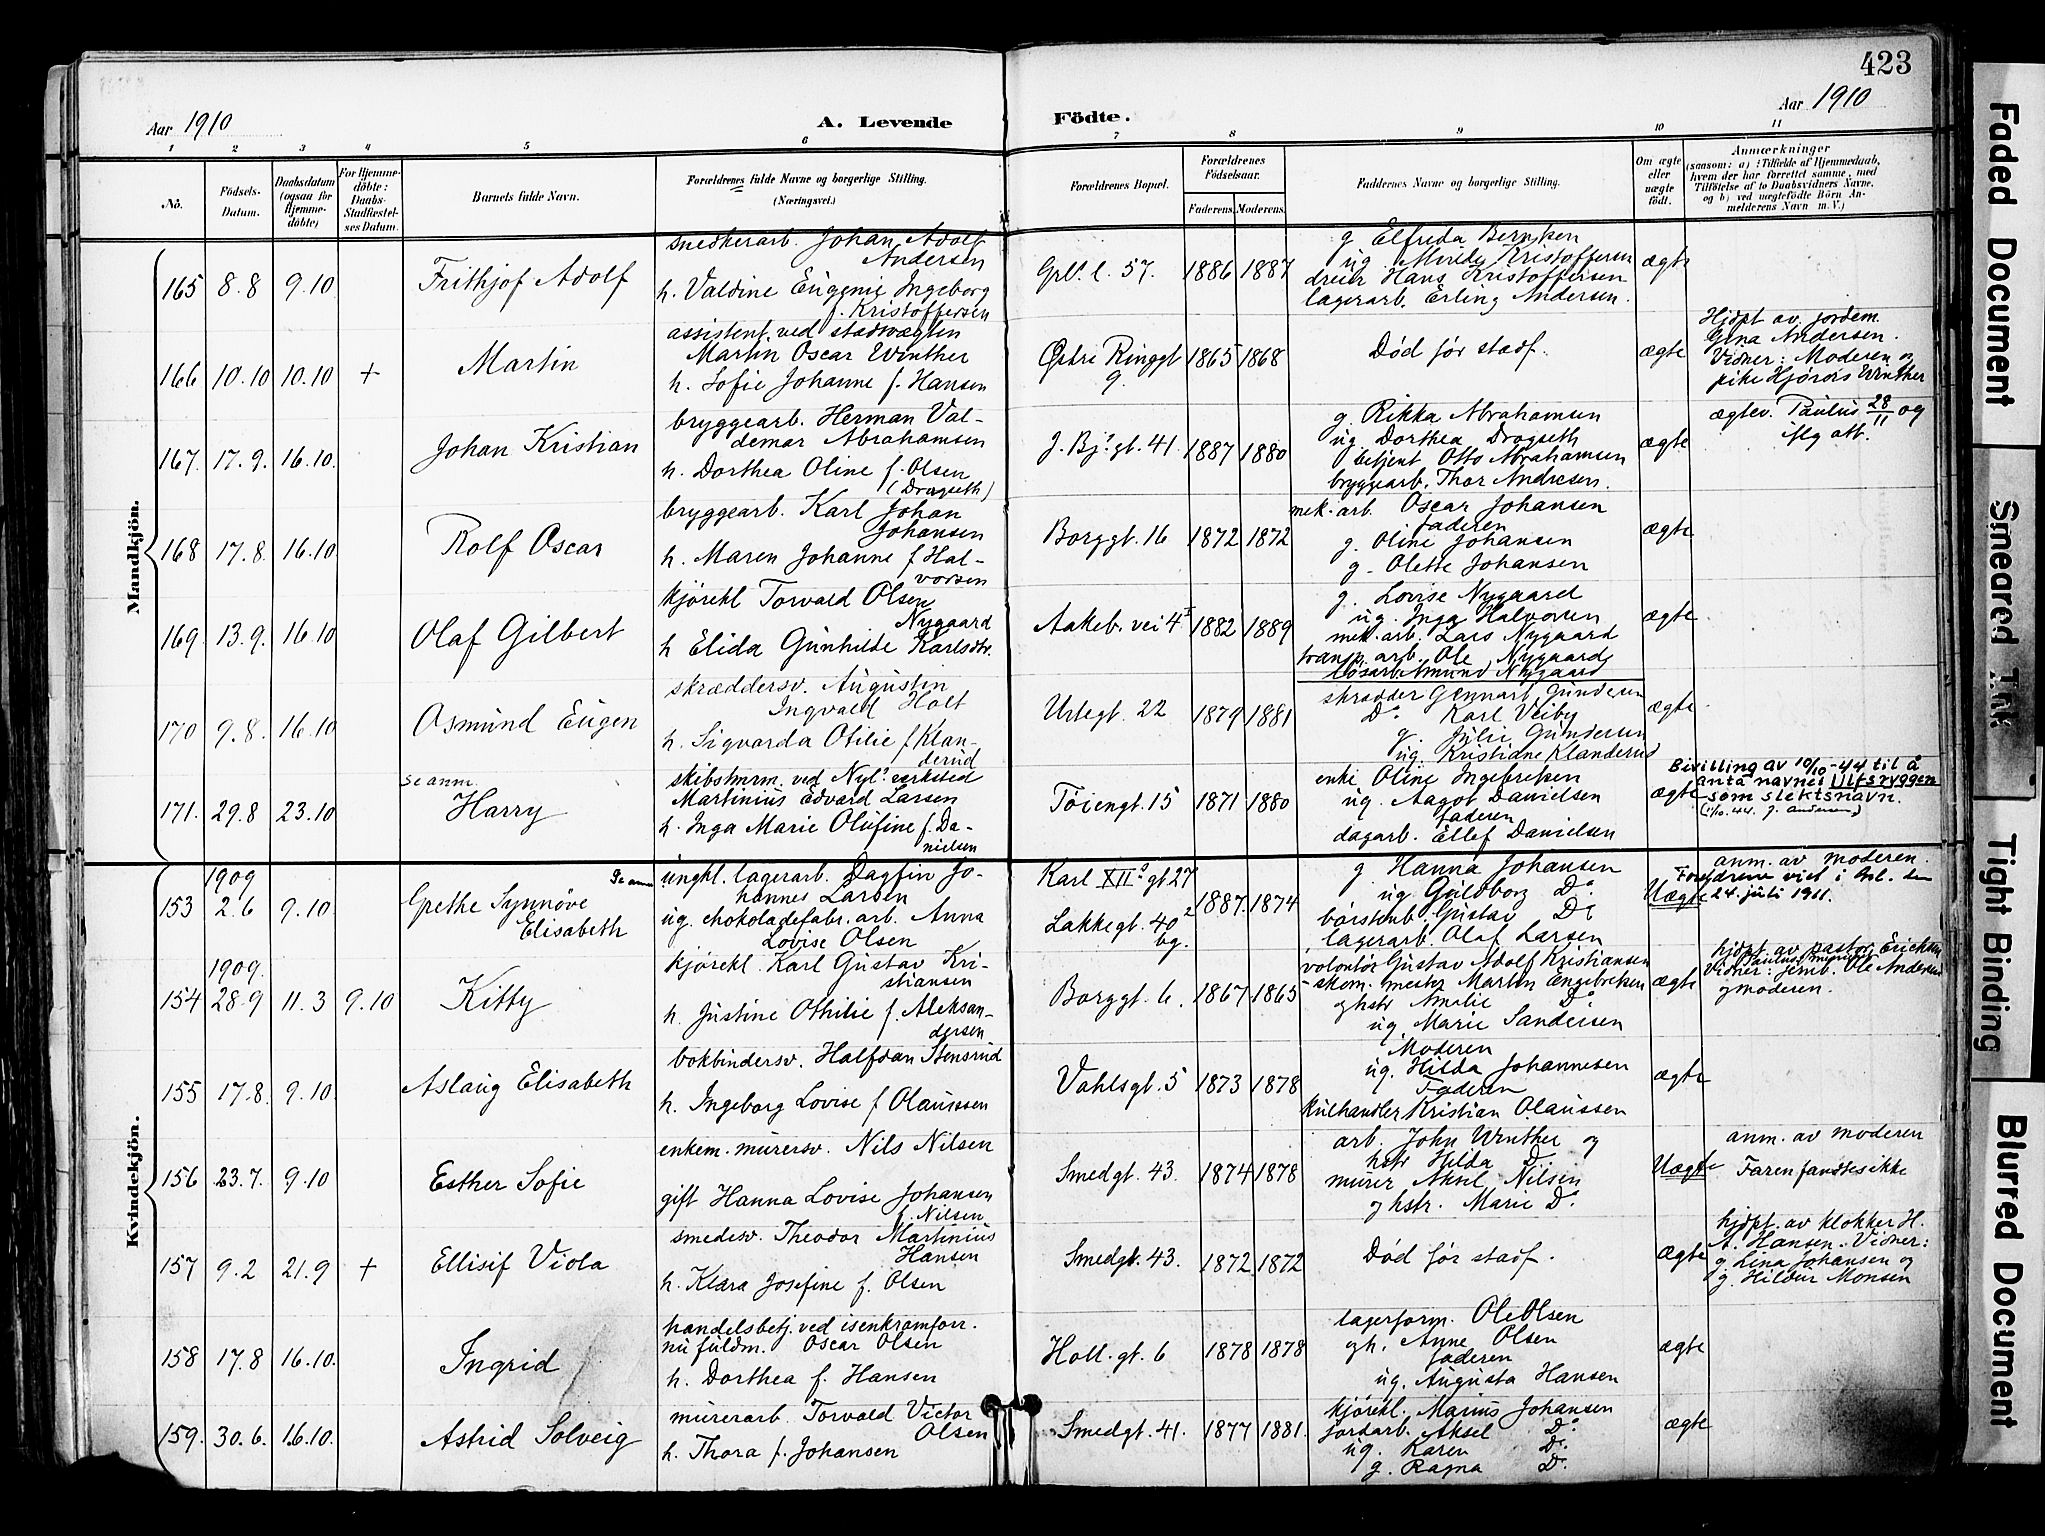 423
Aar 1910
A. Levende Födte.
Aar 1910
1 2 3 4 5 6 7 8 9 10 11
No.
Födsels-
Datum.
Daabsdatum
(ogsaa for
Hjemme-
döbte)
For Hjemme-
döbte:
Daabs-
Stadfæstel-
ses Datum.
Barnets fulde Navn.
Forældrenes fulde Navne og borgerlige Stilling.
(Næringsvei.)
Forældrenes Bopæl.
Forældrenes
Födselsaar.
Faderens. Moderens.
Faddernes Navne og borgerlige Stilling.
Om ægte
eller
uægte
födt.
Anmærkninger
(saasom: a) i Tilfælde af Hjemmedaab,
hvem der har forrettet samme, med
Tilföielse af to Daabsvidners Navne,
og b) ved uægtefödte Börn An-
melderens Navn m. V.)
Mandkjön.
165 8.8 9.10 Frithjof Adolf
snedkerarb. Johan Adolf
Andersen
h. Valdine Eugenie Ingeborg
f. Kristoffersen
Grl. l. 57. 1886 1887
g. Elfrida Berntsen
ug. Minda Kristoffersen
dreier Hans Kristoffersen
lagerarb. Erling Andersen.
ægte
166 10.10 10.10 + Martin
assistent ved stadsvægten
Martin Oscar Winther
h. Sofie Johanne f. Hansen
Østre Ringgt
9. 1865 1868
Død før stadf.
ægte
Hjdpt av jordem.
Gina Andersen.
Vidner: Moderen og
pike Hjørdis Winther
167. 17.9. 16.10. Johan Kristian
bryggearb. Herman Val-
demar Abrahamsen
h. Dorthea Oline f. Olsen
(Dragseth)
J. Bj.s gt. 41. 1887 1880
g. Rikka Abrahamsen
ug. Dorthea Dragseth
betjent Otto Abrahamsen
bryggearb. Thor Andresen.
ægte
ægtev. Paulus 28/11 og
iflg att.
168 17.8. 16.10. Rolf Oscar
bryggearb. Karl Johan
Johansen
h. Maren Johanne f. Hal-
vorsen
Borggt. 16 1872 1872
mek. arb. Oscar Johansen
faderen
g. Oline Johansen
g. Olette Johansen
ægte
169. 13.9. 16.10 Olaf Gilbert
kjørekl Torvald Olsen
Nygaard
h Elida Gunhilde Karlsdtr.
Aakeb. vei 4 I 1882 1889
g. Lovise Nygaard
ug. Inga Halvorsen
mek. arb. Lars Nygaard
transp. arb. Ole Nygaard
løsarb. Amund Nygaard
ægte
170 9.8. 16.10 Osmund Eugen
skræddersv. Augustin
Ingvald Holt
h. Sigvarda Otilie f. Klan-
derud
Urtegt. 22 1879 1881
skrædder Gennart Gundersen
Do Karl Veiby
g. Julie Gundersen
ug. Kristiane Klanderud
ægte
171. 29.8 23.10 se anm.
Harry
skibstmrm. ved Nyl.s verksted
Martinius Edvard Larsen
h. Inga Marie Olufine f. Da-
nielsen
Tøiengt. 15 1871 1880
enke Oline Ingebretsen
ug. Aagot Danielsen
faderen
dagarb. Ellef Danielsen
ægte
Bevilling av 10/10-44 til å
anta navnet Ulfsryggen
som slektsnavn.
(11/10.44. J. Andersen)
Kvindekjön.
153 1909
2.6 9.10 Se anm
Grethe Synnøve
Elisabeth
ungkl. lagerarb. Dagfin Jo-
hannes Larsen
ug. chokoladefabr. arb. Anna
Lovise Olsen
Karl XIIs gt 27
Lakkegt. 40 2
bg. 1887. 1874
g. Hanna Johansen
ug. Guldborg Do
børstenb. Gustav Do
lagerarb. Olaf Larsen
Uægte
anm. av moderen.
Foreldrene viet i Osl. den
24. juli 1911.
154 1909.
28.9 11.3 9.10 Kitty
kjørekl. Karl Gustav Kri-
stiansen
h. Justine Othilie f. Aleksan-
dersen
Borggt. 6. 1867 1865
volontør Gustav Adolf Kristiansen
skom. mester Martin Engebretsen
og hstr Amalie Do
ug. Marie Sandersen
ægte
hjdpt av pastor Ericksen
Paulus menighet
Vidner: jernb. Ole Andersen
og moderen.
155 17.8. 9.10. Aslaug Elisabeth
bokbindersv. Halfdan Stensrud
h. Ingeborg Lovise f. Olaussen
Vahlsgt. 5 1873 1878
Moderen
ug. Hilda Johannesen
Faderen
kulhandler Kristian Olaussen
ægte
156 23.7. 9.10 Esther Sofie
enkem. murersv. Nils Nilsen
gift Hanna Lovise Johansen
f. Nilsen
Smedgt. 43. 1874 1878
arb. John Winther og
hstr Hilda Do
murer Aksel Nilsen
og hstr. Marie Do
Uægte
anm. av moderen
Faren fandtes ikke
157 9.2 21.9 + Ellisif Viola
smedesv. Theodor Martinius
Hansen
h. Klara Josefine f. Olsen
Smedgt. 43. 1872 1872
Død før stadf.
ægte
hjdpt. av klokker H.
A. Hansen. Vidner:
g. Lina Johansen og
g. Hildur Monsen
158 17.8 16.10. Ingrid
handelsbetj. ved isenkramforr.
nu fuldm. Oscar Olsen
h. Dorthea f. Hansen
Holl. gt. 6 1878 1878
lagerform. Ole Olsen
gh. Anne Olsen
faderen
ug. Augusta Hansen
ægte
159. 30.6. 16.10. Astrid Solveig
murerarb. Torvald Victor
Olsen
h. Thora f. Johansen
Smedgt. 41. 1877 1881.
kjørekl. Marius Johansen
jordarb. Aksel Do
ug. Karen Do
g. Ragna Do
ægte
Faded Document
Smeared Ink
Tight Binding
Blurred Document